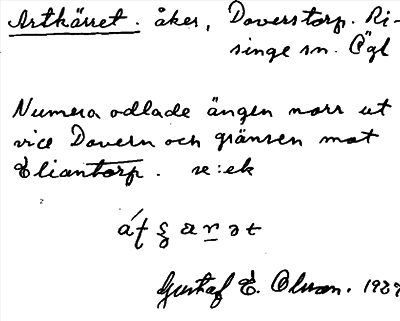 Artkärret. åker, Doverstorp. Ri-
singe sn. Ögl
Numera odlade ängen norr ut
vice Dovern och gränsen mot
Eliantorp. se: ek
Gustaf E. Olsson. 192